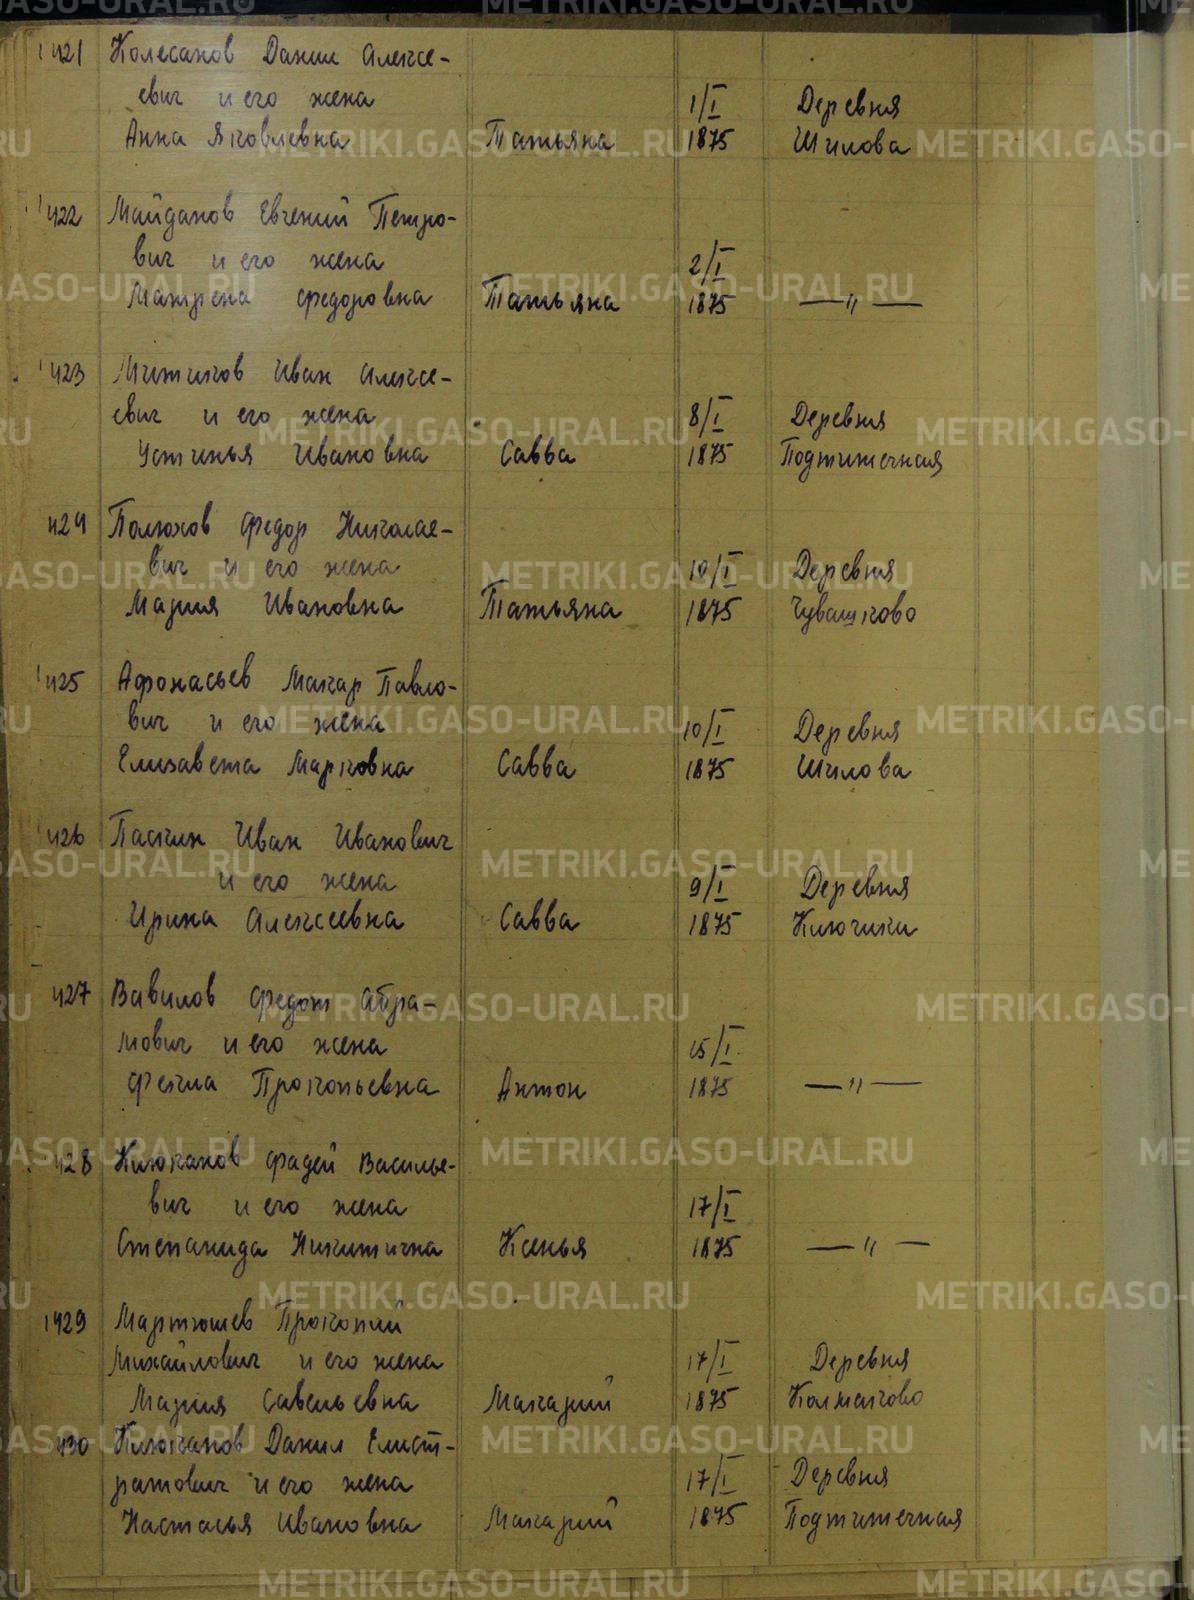 1421 Колесанов Данил Алексе-
евич и его жена 1/I Деревня
Анна Яковлевна Татьяна 1875 Шилова
1422 Майданов Евгений Петро-
вич и его жена 2/I
Матрена Федоровна Татьяна 1875 — " —
1423 Мотиков Иван Алексе-
евич и его жена 8/I Деревня
Устинья Ивановна Савва 1875 Подтитечная
424 Полюхов Федор Николае-
вич и его жена 10/I Деревня
Мария Ивановна Татьяна 1875 Чувашково
1425 Афонасьев Макар Павло-
вич и его жена 10/I Деревня
Елизавета Марковна Савва 1875 Шилова
426 Паскин Иван Иванович
и его жена 9/I Деревня
Ирина Алексеевна Савва 1875 Ключики
427 Вавилов Федот Абра-
мович и его жена 15/I
Фекла Прокопьевна Антон 1875 — " —
428 Клюканов Фадей Василье-
вич и его жена 17/I
Степанида Никитична Ксенья 1875 — " —
1429 Мартюшев Прокопий
Михайлович и его жена 17/I Деревня
Мария Савельевна Макарий 1875 Колмаково
430 Клюканов Данил Елист-
ратович и его жена 17/I Деревня
Настасья Ивановна Макарий 1875 Подтитечная
METRIKI.GASO-URAL.RU